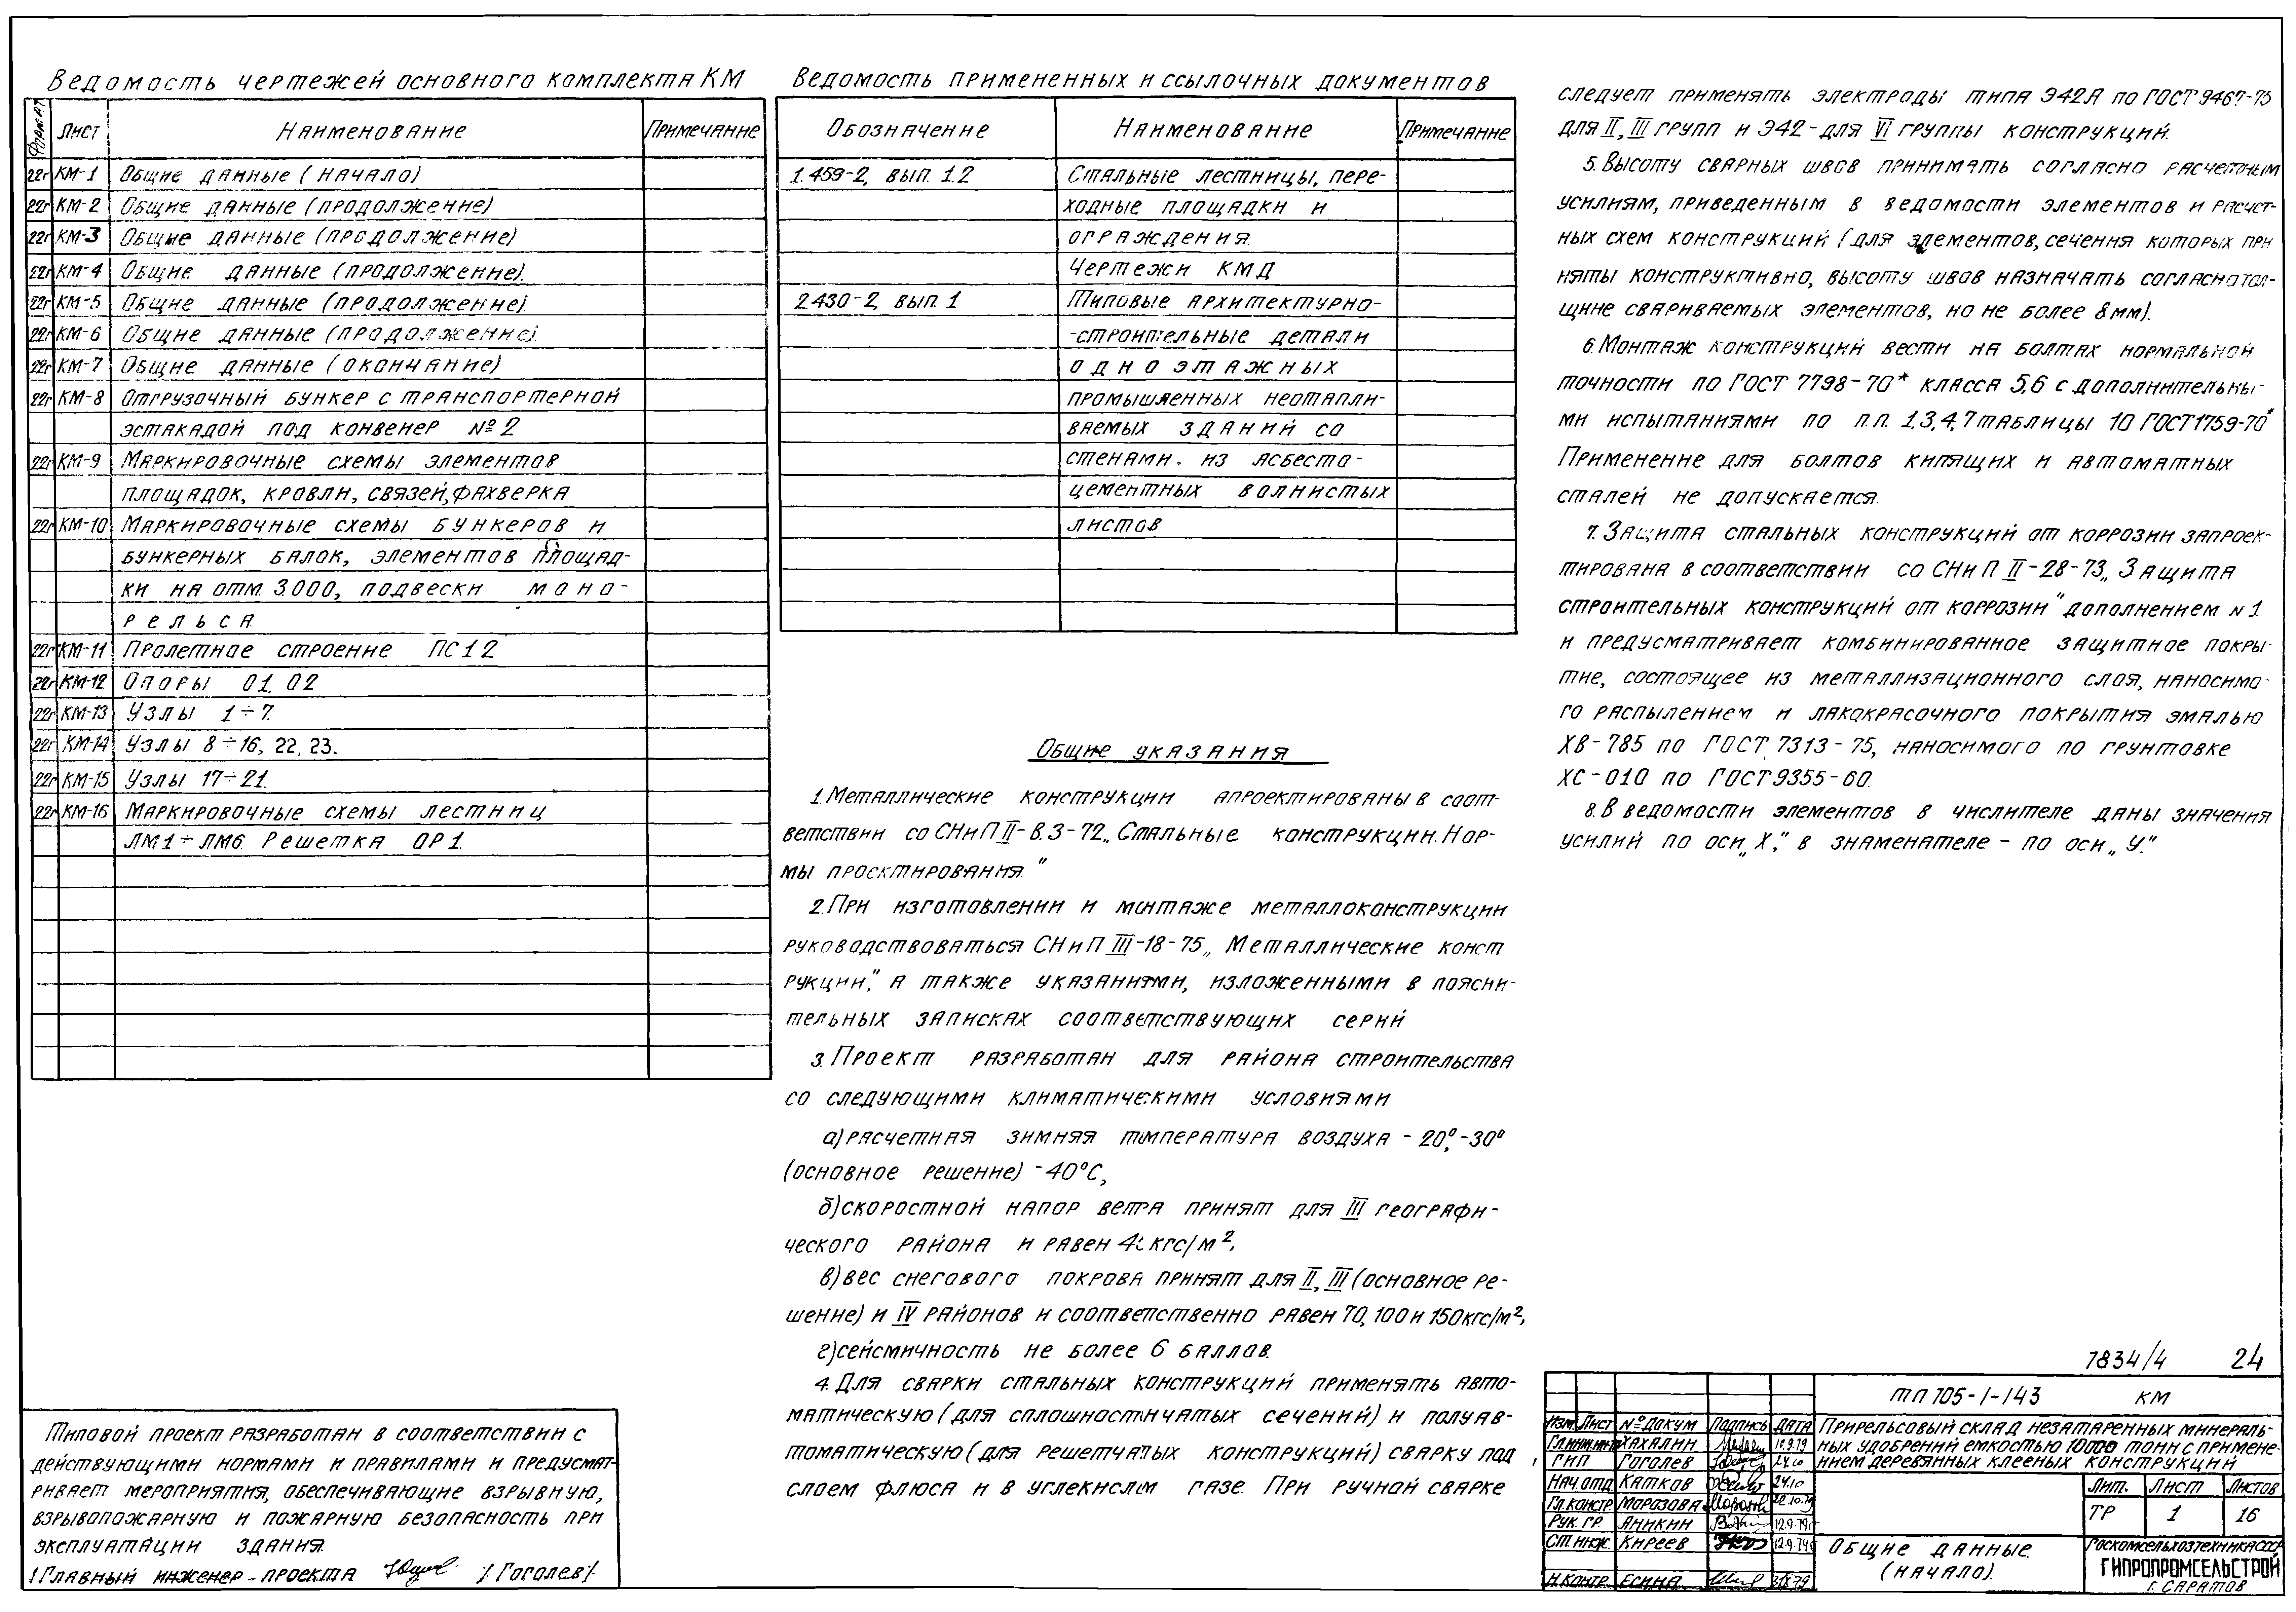 Ведомость чертежей основного комплекта КМ
Формат Лист Наименование Примечание
22г КМ-1 Общие данные (начало)
22г КМ-2 Общие данные (продолжение)
22г КМ-3 Общие данные (продолжение)
22г КМ-4 Общие данные (продолжение).
22г КМ-5 Общие данные (продолжение).
22г КМ-6 Общие данные (продолжение).
22г КМ-7 Общие данные (окончание)
22г КМ-8 Отгрузочный бункер с транспортерной
эстакадой под конвейер №2
22г КМ-9 Маркировочные схемы элементов
площадок, кровли, связей, фахверка
22г КМ-10 Маркировочные схемы бункеров и
бункерных балок, элементов площад-
ки на отм. 3.000, подвески моно-
рельса
22г КМ-11 Пролетное строение ПС12
22г КМ-12 Опоры О1, О2
22г КМ-13 Узлы 1÷7.
22г КМ-14 Узлы 8÷16, 22, 23.
22г КМ-15 Узлы 17÷21.
22г КМ-16 Маркировочные схемы лестниц
ЛМ1÷ЛМ6. Решетка ОР1.
Типовой проект разработан в соответствии с
действующими нормами и правилами и предусмат-
ривает мероприятия, обеспечивающие взрывную,
взрывопожарную и пожарную безопасность при
эксплуатации здания.
Главный инженер проекта /Гоголев/.
Ведомость примененных и ссылочных документов
Обозначение Наименование Примечание
1.459-2, вып. 1.2 Стальные лестницы, пере-
ходные площадки и
ограждения.
Чертежи КМД
2.430-2, вып. 1 Типовые архитектурно-
-строительные детали
одноэтажных
промышленных неотапли-
ваемых зданий со
стенами из асбесто-
цементных волнистых
листов
Общие указания
1. Металлические конструкции апроектированы в соот-
ветствии со СНиП II-В.3-72 „Стальные конструкции. Нор-
мы проектирования."
2. При изготовлении и монтаже металлоконструкции
руководствоваться СНиП III-18-75 „Металлические конст
рукции", а также указаниями, изложенными в поясни-
тельных записках соответствующих серий
3. Проект разработан для района строительства
со следующими климатическими условиями
а) расчетная зимняя температура воздуха -20°, -30°
(основное решение) -40°С,
б) скоростной напор ветра принят для III географи-
ческого района и равен кгс/м²,
в) вес снегового покрова принят для II, III (основное ре-
шение) и IV районов и соответственно равен 70, 100 и 150 кгс/м²,
г) сейсмичность не более 6 баллов.
4. Для сварки стальных конструкций применять авто-
матическую (для сплошностенчатых сечений) и полуав-
томатическую (для решетчатых конструкций) сварку под
слоем флюса и в углекислом газе. При ручной сварке
следует применять электроды типа Э42А по ГОСТ 9467-75
для II, III групп и Э42-для VI группы конструкций.
5. Высоту сварных швов принимать согласно расчетным
усилиям, приведенным в ведомости элементов и расчет-
ных схем конструкций (для элементов, сечения которых при
няты конструктивно, высоту швов назначать согласно тол-
щине свариваемых элементов, но не более 8мм).
6. Монтаж конструкций вести на болтах нормальной
точности по ГОСТ 7798-70* класса 5,6 с дополнительны-
ми испытаниями по п.п. 1,3,4,7 таблицы 10 ГОСТ 1759-70*
Применение для болтов кипящих и автоматных
сталей не допускается.
7. Защита стальных конструкций от коррозии запроек-
тирована в соответствии со СНиП II-28-73 „Защита
строительных конструкций от коррозии" дополнением №1
и предусматривает комбинированное защитное покры-
тие, состоящее из металлизационного слоя, наносимо-
го распылением и лакокрасочного покрытия эмалью
ХВ-785 по ГОСТ 7313-75, наносимого по грунтовке
ХС-010 по ГОСТ 9355-60.
8. В ведомости элементов в числителе даны значения
усилий по оси „Х", в знаменателе - по оси „У."
7834/4 24
ТП 705-1-143 КМ
Изм. Лист № докум Подпись Дата
Гл.инж.ин-та Хахалин 10.9.79
ГИП Гоголев 24.10
Нач.отд Катков 24.10
Гл.констр Морозова 22.10.79
Рук. гр. Аникин 12.9.79г
Ст.инж. Киреев 12.9.79г
Н.контр. Есина
Прирельсовый склад незатаренных минераль-
ных удобрений емкостью 10000 тонн с примене-
нием деревянных клееных конструкций
Лит. Лист Листов
ТР 1 16
Общие данные.
(начало).
Госкомсельхозтехника СССР
ГИПРОПРОМСЕЛЬСТРОЙ
г. Саратов